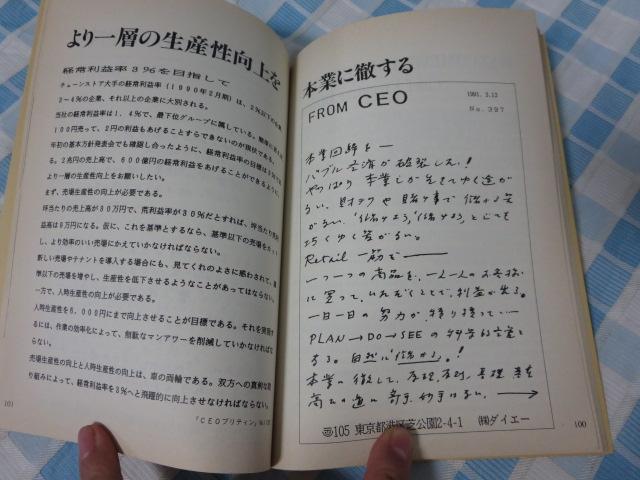 本業に徹する
FROM CEO
1991. 3.13
No. 397
本業回帰を―
バブル経済が破裂した!
やっぱり本業しか生きてゆく道が
ない。財テクや賭け事で儲かる筈
がない。
巧くゆく筈がない。
Retail 一筋で―
一つ一つの商品を、一人一人のお客様
に買って、いただくことで、利益が出る。
一日一日の努力が積り積って…
PLAN→DO→SEE
する。自然に「儲かる」。!
本業に徹して、
105 東京都港区芝公園2-4-1 ㈱ダイエー
100
より一層の生産性向上を
経常利益率3%を目指して
チェーンストア大手の経常利益率(1990年2月期)は、2%以下の企業
2~4%の企業、それ以上の企業に大別される。
当社の経常利益率は1.4%で、最下位グループに属している。
100円売って、2円の利益もあげることすらできないのが現状である。
年初の基本方針発表会でも確認し合ったように、経常利益率の目標は3%であ
る。2兆円の売上高で、600億円の経常利益をあげることができるように
より一層の生産性向上をお願いしたい。
まず、売場生産性の向上が必要である。
坪当たりの売上高が30万円で、荒利益率が30%だとすれば、坪当たり売
益高は9万円になる。仮に、これを基準とするなら、基準以下の売場をカット
し、より効率のいい売場にかえていかなければならない。
新しい売場やテナントを導入する場合にも、見てくれのよさに惑わされて、基
準以下の売場を増やし、生産性を低下させるようなことがあってはならない。
一方で、人時生産性の向上が必要である。
人時生産性を6,000円にまで向上させることが目標である。それを実現す
るには、作業の効率化によって、無駄なマンアワーを削減していかなければな
らない。
売場生産性の向上と人時生産性の向上は、車の両輪である。双方への真剣な取
り組みによって、経常利益率を3%へと飛躍的に向上させなければならない。
「CEOブリティン」
101